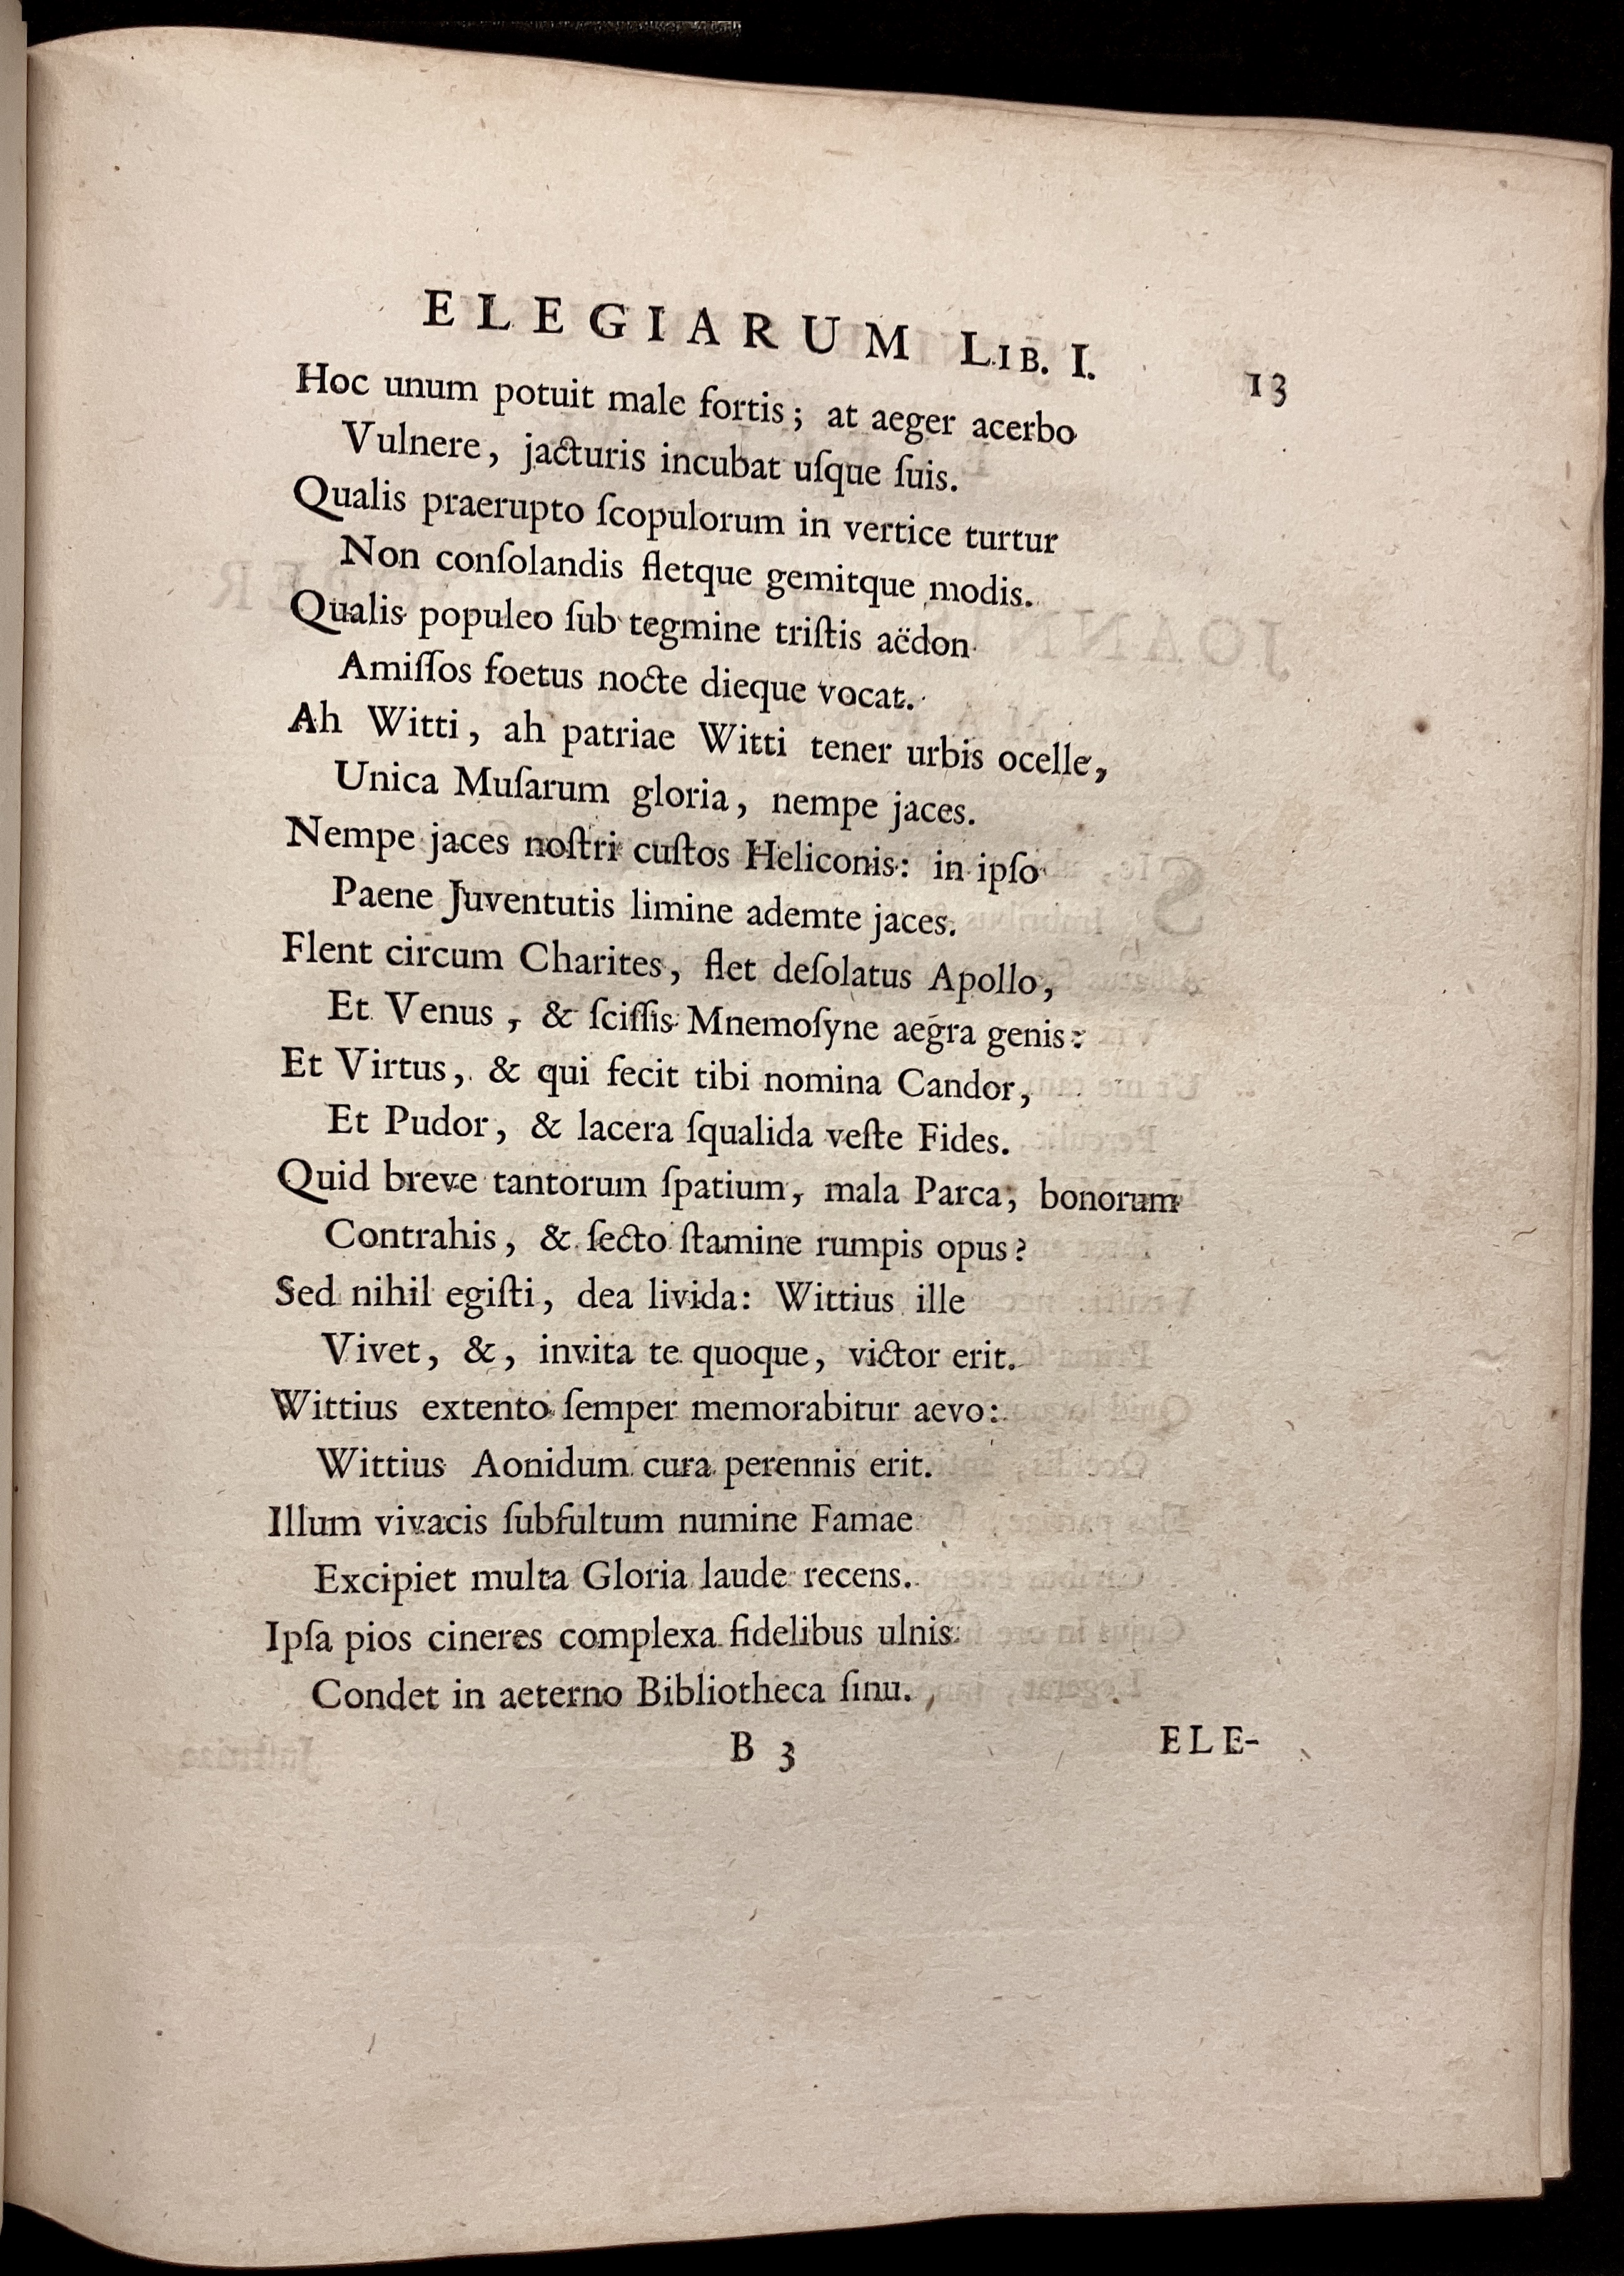 ELEGIARUM LIB. I. 13
Hoc unum potuit male fortis; at aeger acerbo
Vulnere, jacturis incubat uſque ſuis.
Qualis praerupto ſcopulorum in vertice turtur
Non conſolandis fletque gemitque modis.
Qualis populeo ſub tegmine triſtis aëdon
Amiſſos foetus nocte dieque vocat.
Ah Witti, ah patriae Witti tener urbis ocelle,
Unica Muſarum gloria, nempe jaces.
Nempe jaces noſtri cuſtos Heliconis: in ipſo
Paene Juventutis limine ademte jaces.
Flent circum Charites, flet deſolatus Apollo,
Et Venus, & ſciſſis Mnemoſyne aegra genis:
Et Virtus, & qui fecit tibi nomina Candor,
Et Pudor, & lacera ſqualida veſte Fides.
Quid breve tantorum ſpatium, mala Parca, bonorum
Contrahis, & ſecto ſtamine rumpis opus?
Sed nihil egiſti, dea livida: Wittius ille
Vivet, &, invita te quoque, victor erit.
Wittius extento ſemper memorabitur aevo:
Wittius Aonidum cura perennis erit.
Illum vivacis ſubfultum numine Famae
Excipiet multa Gloria laude recens.
Ipſa pios cineres complexa fidelibus ulnis
Condet in aeterno Bibliotheca ſinu.
B 3 ELE-